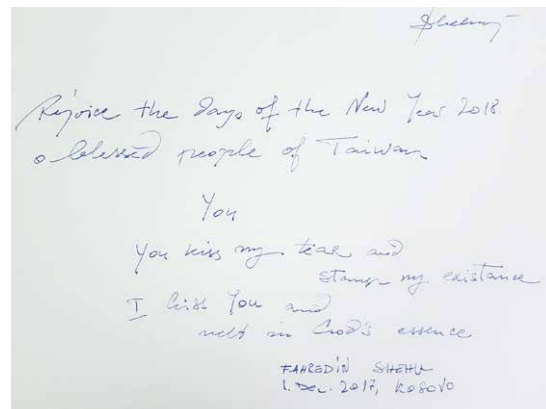 Rejoice the days of the New Year 2018
o blessed people of Taiwan
You
You kiss my tear and
stamp my existance
I kiss You and
melt in God's essence
FAHREDIN SHEHU
1. DEC. 2017, KOSOVO